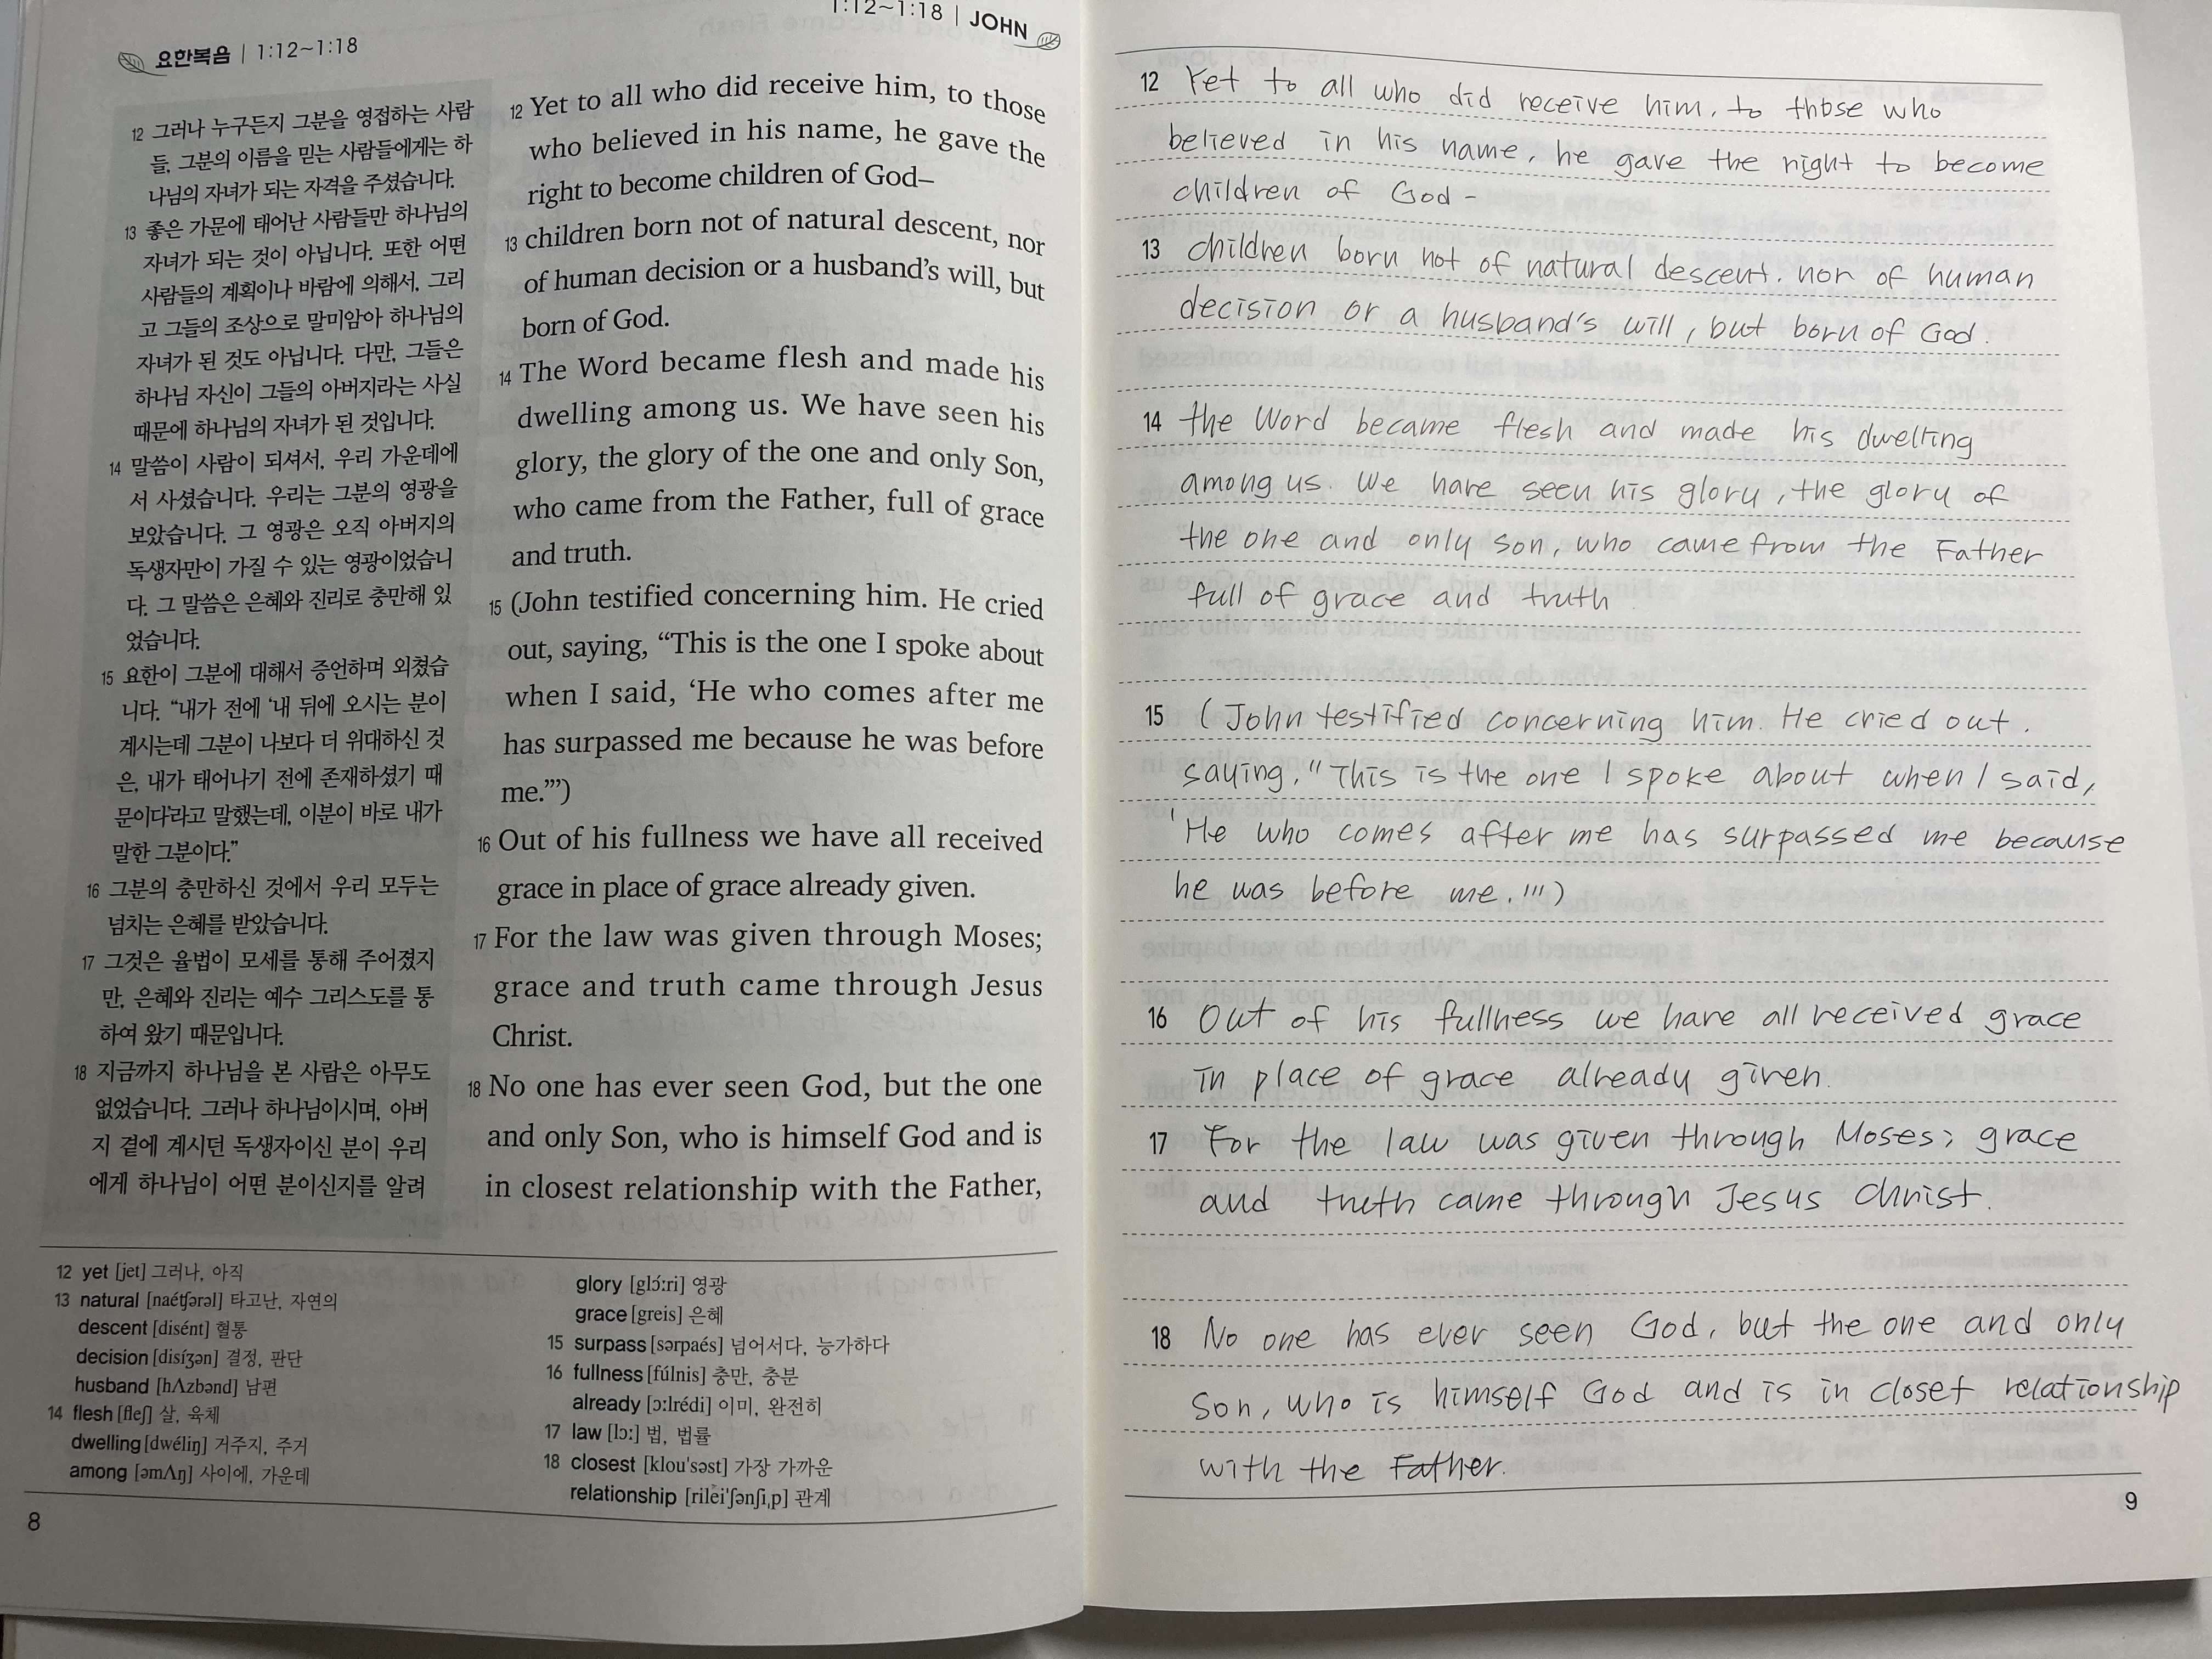 요한복음 | 1:12~1:18
12 그러나 누구든지 그분을 영접하는 사람
들, 그분의 이름을 믿는 사람들에게는 하
나님의 자녀가 되는 자격을 주셨습니다.
13 좋은 가문에 태어난 사람들만 하나님의
자녀가 되는 것이 아닙니다. 또한 어떤
사람들의 계획이나 바람에 의해서, 그리
고 그들의 조상으로 말미암아 하나님의
자녀가 된 것도 아닙니다. 다만, 그들은
하나님 자신이 그들의 아버지라는 사실
때문에 하나님의 자녀가 된 것입니다.
14 말씀이 사람이 되셔서, 우리 가운데에
서 사셨습니다. 우리는 그분의 영광을
보았습니다. 그 영광은 오직 아버지의
독생자만이 가질 수 있는 영광이었습니
다. 그 말씀은 은혜와 진리로 충만해 있
었습니다.
15 요한이 그분에 대해서 증언하며 외쳤습
니다. “내가 전에 ‘내 뒤에 오시는 분이
계시는데 그분이 나보다 더 위대하신 것
은, 내가 태어나기 전에 존재하셨기 때
문이다’라고 말했는데, 이분이 바로 내가
말한 그분이다.”
16 그분의 충만하신 것에서 우리 모두는
넘치는 은혜를 받았습니다.
17 그것은 율법이 모세를 통해 주어졌지
만, 은혜와 진리는 예수 그리스도를 통
하여 왔기 때문입니다.
18 지금까지 하나님을 본 사람은 아무도
없었습니다. 그러나 하나님이시며, 아버
지 곁에 계시던 독생자이신 분이 우리
에게 하나님이 어떤 분이신지를 알려
1:12~1:18 | JOHN
12 Yet to all who did receive him, to those
who believed in his name, he gave the
right to become children of God–
13 children born not of natural descent, nor
of human decision or a husband’s will, but
born of God.
14 The Word became flesh and made his
dwelling among us. We have seen his
glory, the glory of the one and only Son,
who came from the Father, full of grace
and truth.
15 (John testified concerning him. He cried
out, saying, “This is the one I spoke about
when I said, ‘He who comes after me
has surpassed me because he was before
me.’”)
16 Out of his fullness we have all received
grace in place of grace already given.
17 For the law was given through Moses;
grace and truth came through Jesus
Christ.
18 No one has ever seen God, but the one
and only Son, who is himself God and is
in closest relationship with the Father,
12 yet [jet] 그러나, 아직
13 natural [naétʃərəl] 타고난, 자연의
descent [disént] 혈통
decision [disíʒən] 결정, 판단
husband [hΛzbənd] 남편
14 flesh [fleʃ] 살, 육체
dwelling [dwéliŋ] 거주지, 주거
among [əmΛŋ] 사이에, 가운데
glory [glɔ́:ri] 영광
grace [greis] 은혜
15 surpass [sərpaés] 넘어서다, 능가하다
16 fullness [fúlnis] 충만, 충분
already [ɔ:lrédi] 이미, 완전히
17 law [lɔ:] 법, 법률
18 closest [klou'səst] 가장 가까운
relationship [riléi'ʃənʃi,p] 관계
8
12 Yet to all who did receive him, to those who
believed in his name, he gave the right to become
children of God -
13 children born not of natural descent. nor of human
decision or a husband's will, but born of God.
14 the Word became flesh and made his dwelling
among us. We have seen his glory, the glory of
the one and only son, who came from the Father
full of grace and truth.
15 (John testified concerning him. He cried out.
saying, "This is the one I spoke about when I said,
'He who comes after me has surpassed me because
he was before me.'")
16 Out of his fullness we have all received grace
in place of grace already given.
17 For the law was given through Moses; grace
and truth came through Jesus Christ.
18 No one has ever seen God, but the one and only
Son, who is himself God and is in closet relationship
with the Father.
9